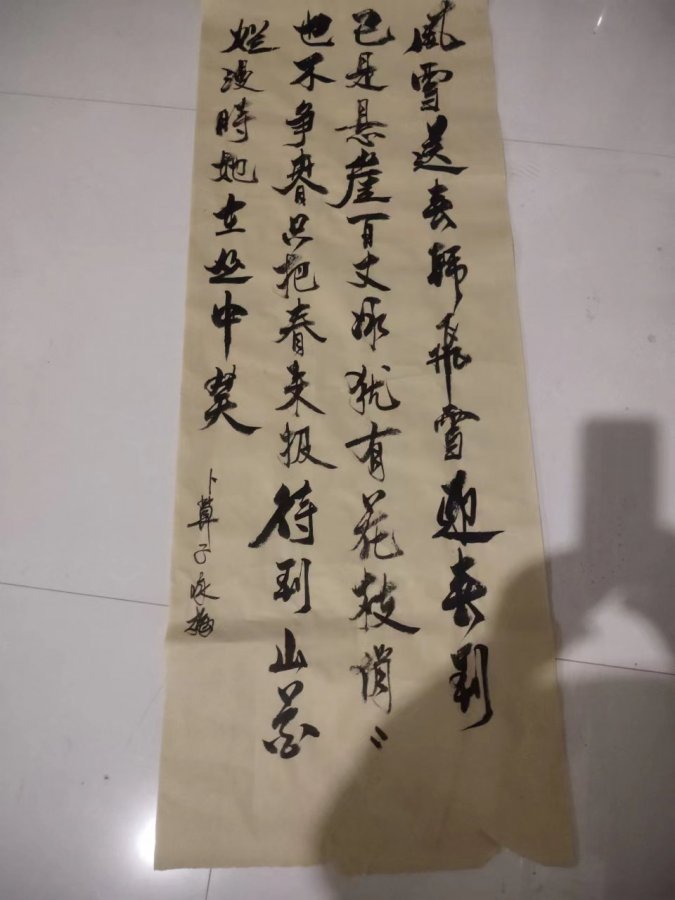 風雪送春歸飛雪迎春到
已是悬崖百丈冰犹有花枝俏〻
也不争春只把春来报待到山花
烂漫時她在丛中笑
卜算子咏梅